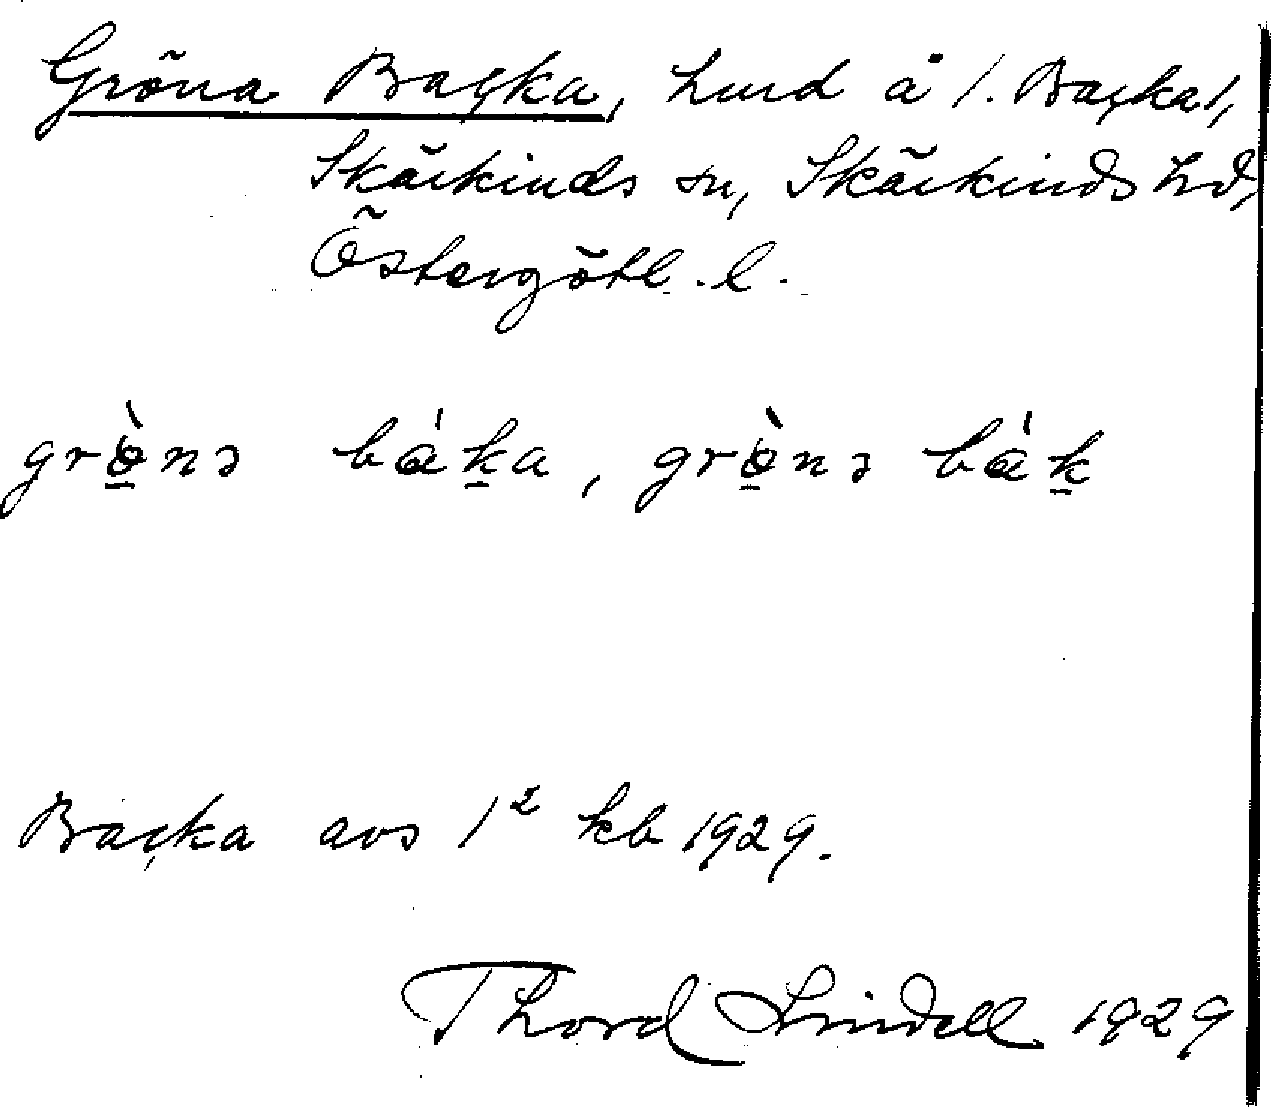 Gröna Backa, lund å /. Backa/,
Skärkinds sn, Skärkinds hd,
Östergötl. l.
grö̀nə bák̠a, grö̀nə bák̠
Backa avs 1² kb 1929.
Thord Lindell 1929